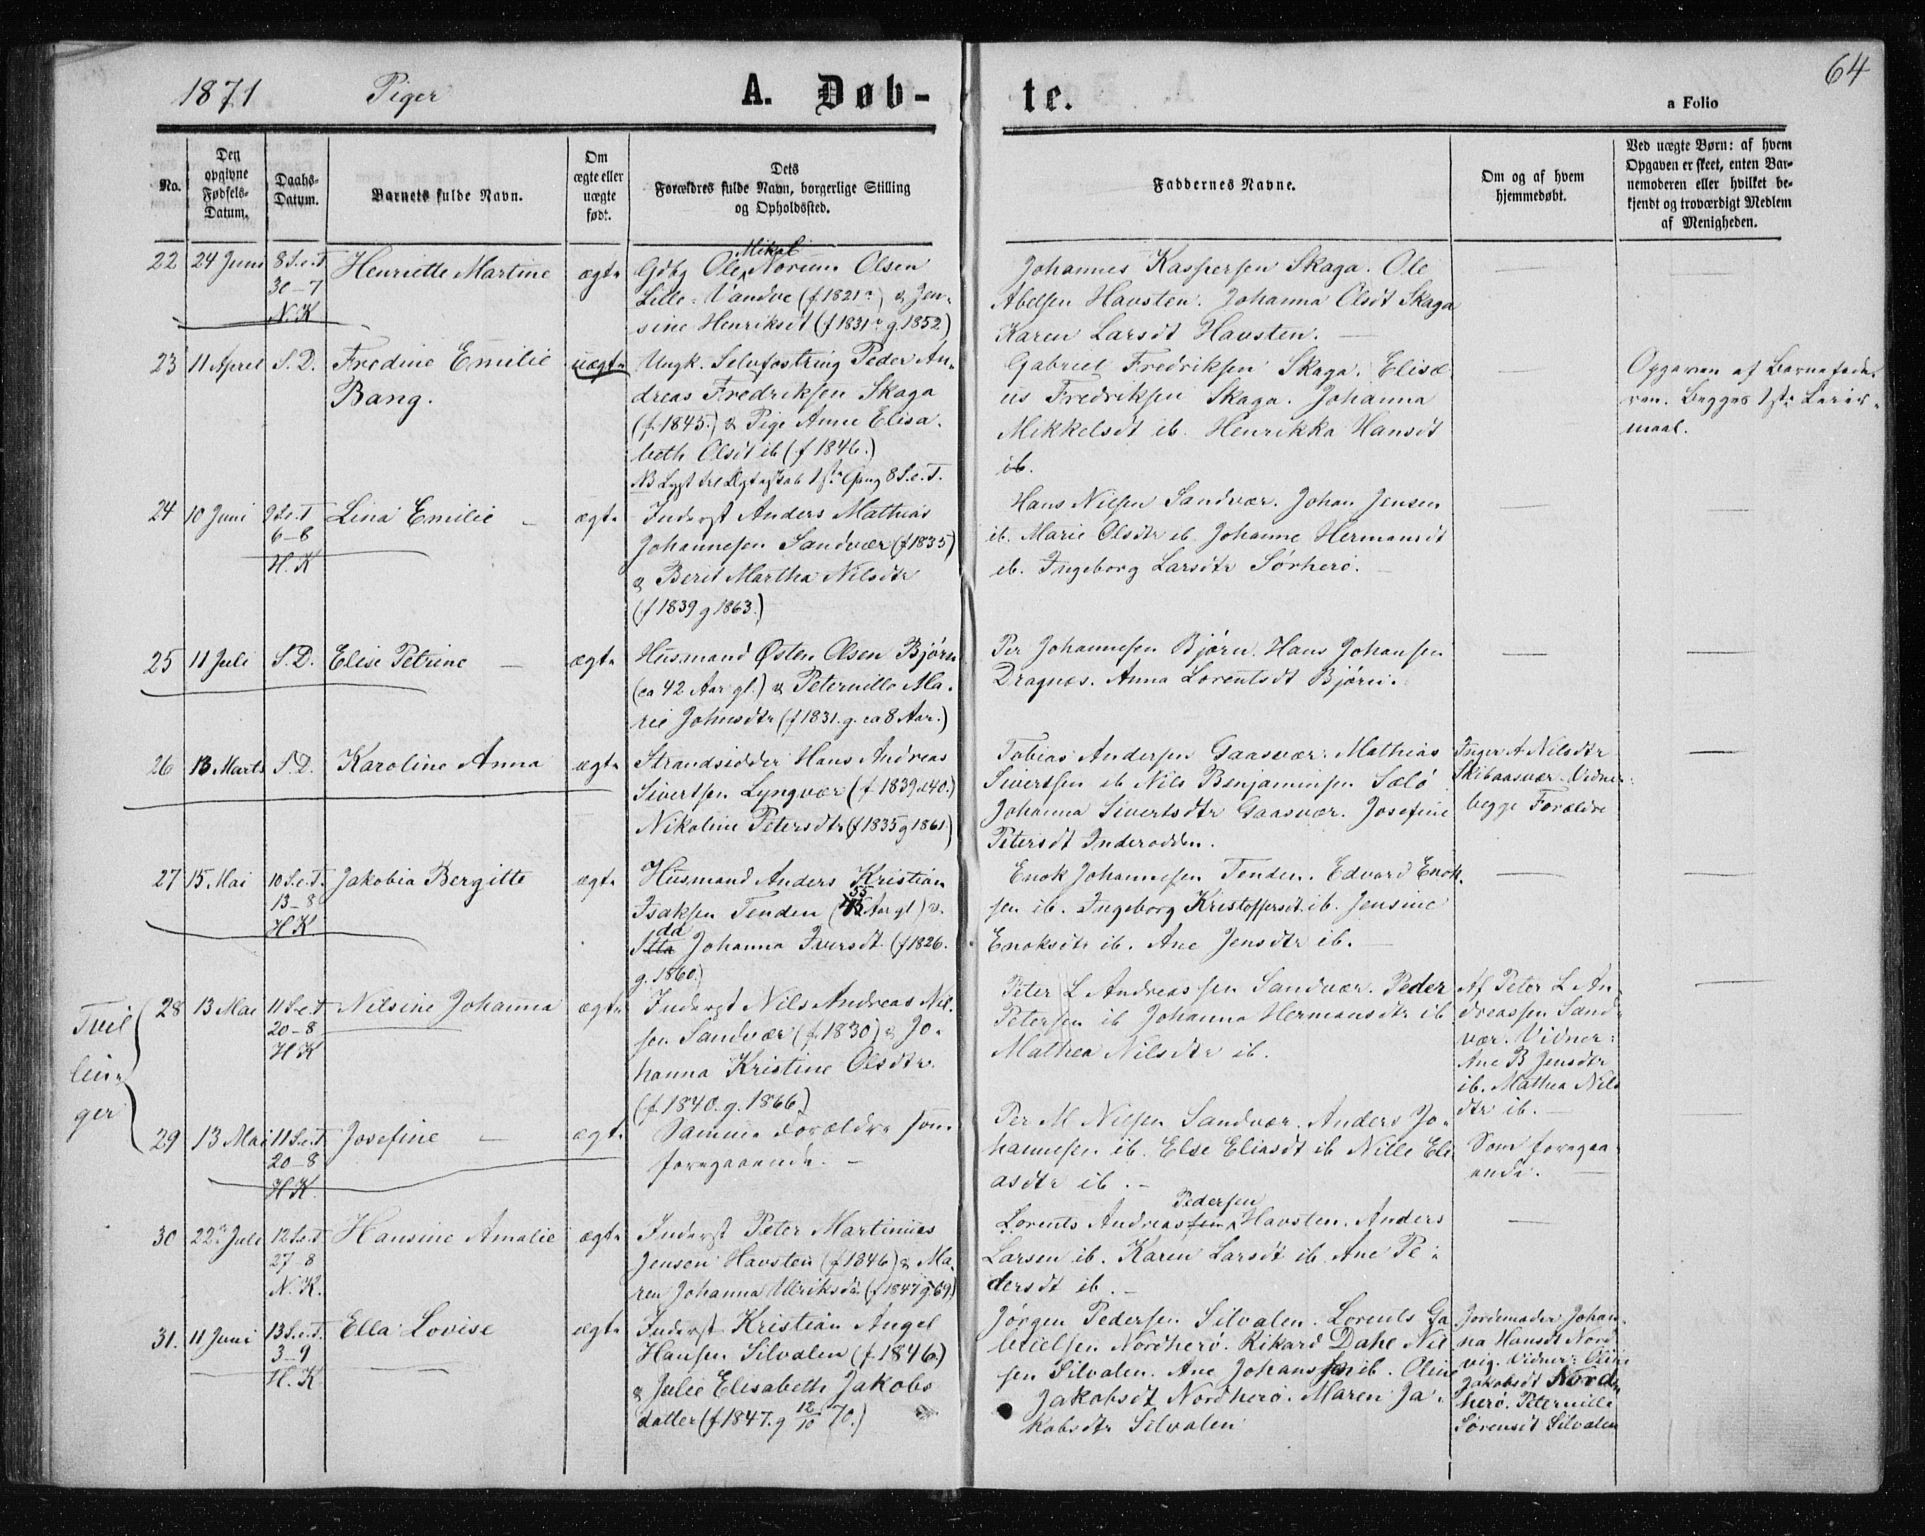 1871 Piger A. Døb-te. a Folio 64
No.
Den opgivne Fødsels-Datum.
Daabs-Datum.
Barnets fulde Navn.
Om ægte eller uægte født.
Dets Forældres fulde Navn, borgerlige Stilling og Opholdssted.
Faddernes Navne.
Om og af hvem hjemmedøbt.
Ved uægte Børn: af hvem Opgaven er skeet, enten Barnemoderen eller hvilket bekjendt og troværdigt Medlem af Menigheden.
22 24 Juni 8 S. e. T. 30-7 N. K Henriette Martine ægte
Gdbg Ole Mikal Norum Olsen
Lille-Vandve (f 1821) & Jen-
sine Henriksdt (f 1831 g. 1852)
Johannes Kaspersen Skaga. Ole
Abelsen Havsten. Johanna Olsdt Skaga
Karen Larsdt Havsten. —
23 11 April S. D. Fredine Emilie
Bang.
uægte
Ungk. Selvfostring Peder An-
dreas Fredriksen Skaga
(f. 1845.) & Pige Anne Elisa-
beth Olsdt ib (f 1846.)
NB Lyst til Ægteskab 1ste Gang 8 S. e. T.
Gabriel Fredriksen Skaga. Elisæ
us Fredriksen Skaga. Johanna
Mikkelsdt ib. Henrikka Hansdt
ib.
Opgaven af Barnefade-
ren. Begges 1ste Leier-
maal.
24 10 Juni 9 S. e. T 6-8 H. K Lina Emilie — ægte
Inderst Anders Mathias
Johannesen Sandvær (f 1835)
& Berit Martha Nilsdtr
(f 1839 g 1863.)
Hans Nilsen Sandvær. Johan Jensen
ib. Marie Olsdtr ib. Johanne Hermansdt
ib. Ingeborg Larsdtr Sørherø. —
25 11 Juli S. D. Elise Petrine — ægte
Husmand Østen Olsen Bjørn
(ca 42 Aar gl.) & Peternille Ma-
rie Johnsdtr (f 1831. g. ca 8 Aar.)
Per Johannesen Bjørn. Hans Johansen
Dragnæs. Anna Lorentsdt Bjørn.
26 13 Marts S. D. Karoline Anna ægte
Strandsidder Hans Andreas
Sivertsen Lyngvær (f 1839 & 40.)
Nikoline Petersdtr (f 1835 g 1861)
Tobias Andersen Gaasvær. Mathias
Sivertsen ib Nils Benjaminsen Sælø
Johanna Sivertsdtr Gaasvær. Josefine
Petersdt Inderodden.
Inger A Nilsdtr
Skibaasvær. Vidne-
begge Forældre
27 15 Mai 10 S. e. T. 13-8 H K. Jakobia Bergitte ægte
Husmand Anders Kristian
Isaksen Tenden (55 Aar gl) &
dd
Johanna Iversdt (f 1826.
g. 1860.)
Enok Johannesen Tenden. Edvard Enok-
sen ib. Ingeborg Kristoffersdt ib. Jensine
Enoksdtr ib. Ane Jensdtr ib. —
Tvil
lin-
ger
28 13 Mai 11 S. e. T 20-8 H K Nilsine Johanna ægte
Inderst Nils Andreas Nil-
sen Sandvær (f. 1830) & Jo-
hanna Kristine Olsdtr.
(f. 1840. g. 1866.)
Peter L Andreassen Sandvær. Peder
Petersen ib Johanna Hermansdtr ib
Mathea Nilsdtr ib.
Af Peter L An-
dreassen Sand-
vær. Vidner:
Ane B Jensdtr
ib. Mathea Nils
dtr ib. —
29 13 Mai 11 S. e. T 20-8 H K. Josefine — ægte
Samme Forældre som
foregaaende. —
Per M Nilsen Sandvær. Anders Jo-
hannesen ib. Else Eliasdt ib Nille Eli
asdtr ib. —
Som foregaa-
ende.
30 22de Juli 12 S. e. T 27-8 N. K. Hansine Amalie ægte
Inderst Peter Martinus
Jensen Havsten (f 1846) & Ma-
ren Johanna Ulriksdt (f 1847 g 69)
Pedersen
Lorents Andreassen Havsten. Anders
Larsen ib. Karen Larsdt ib. Ane Pe-
dersdt ib. —
31. 11 Juni 13 S. e. T. 3-9 H. K Ella Lovise ægte
Inderst Kristian Angel
Hansen Silvalen (f. 1846.)
& Julie Elisabeth Jakobs
datter (f 1847. g 12/10 70.)
Jørgen Pedersen Silvalen. Lorents Ga
brielsen Nordherø. Rikard Dahl Nil
sen Silvalen. Ane Johanssen ib. Oline
Jakobsdt Nordherø. Maren Ja-
kobsdtr Silvalen
Jordemoder Johan-
na Hansdt Nord
vig. Vidner: Oline
Jakobsdt Nord-
herø. Peternille
Sørensdt Silvalen